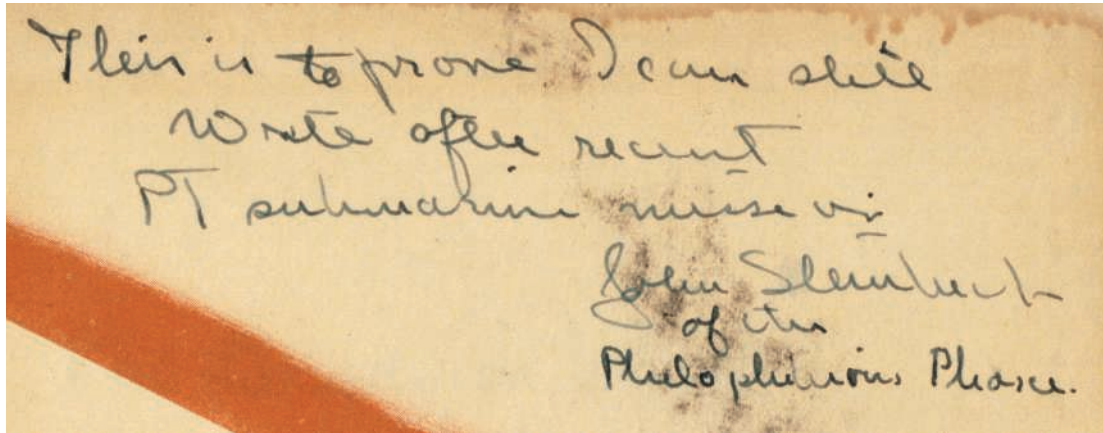 This is to prove I can still
Write after recent
PT submarine mission
John Steinbeck
of the
Phase.